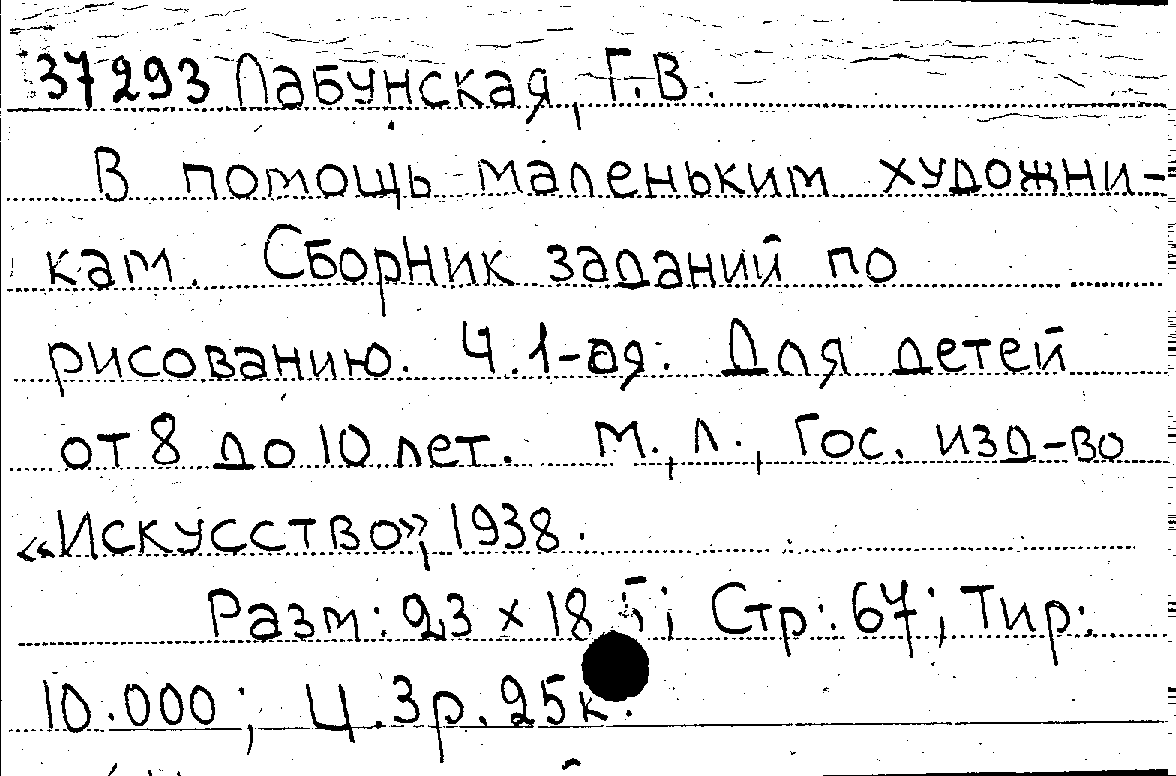 37293 Лабунская, Г.В.
В помощь маленьким художни-
кам. Сборник заданий по
рисованию. Ч.1-ая. Для детей
от 8 до 10 лет. М., Л., Гос. изд-во
«Искусство», 1938.
Разм: 23 x 18,5; Стр: 67; Тир:
10.000; Ц.3р.25к.